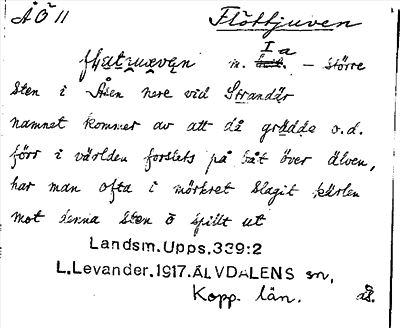 ÅÖ 11 Flöttjuven
I a
m. – större
sten i Åsen nere vid Strandär
namnet kommer av att då grädda o.d.
förr i världen forslats på båt över älven,
har man ofta i mörkret slagit kärlen
mot denna sten o spillt ut
Landsm.Upps.339:2
L.Levander.1917.ÄLVDALENS sn,
Kopp. län.